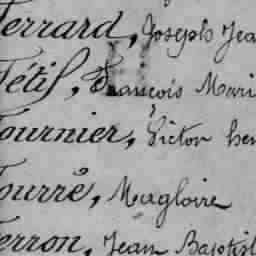 Ferrard, Joseph Jea
Fétis, François Mari
Fournier, Victor hen
Fourré, Magloire
Ferron, Jean Baptist